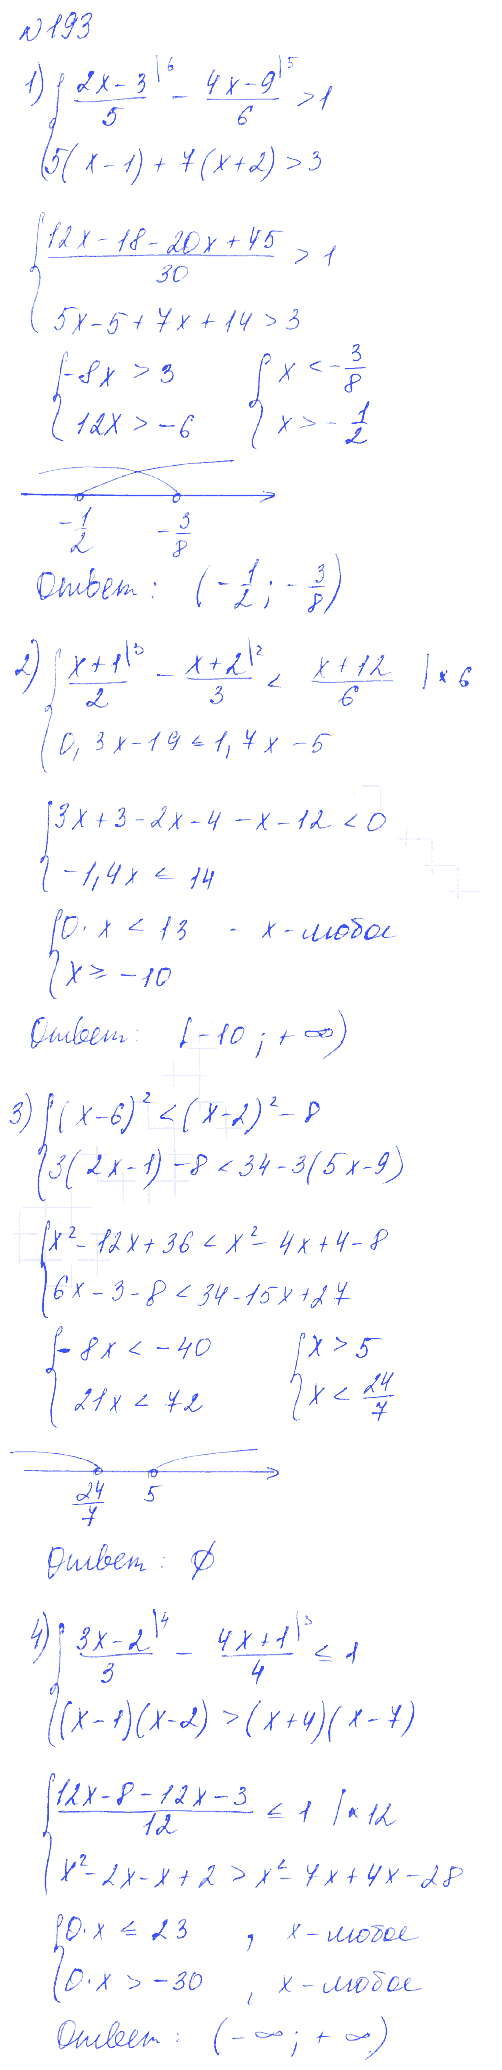 №193
1) { (2x-3)/5 |6 - (4x-9)/6 |5 > 1
5(x-1) + 7(x+2) > 3
{ (12x-18-20x+45)/30 > 1
5x-5+7x+14 > 3
{ -8x > 3 { x < -3/8
12x > -6 x > -1/2
-1/2 -3/8
Ответ: (-1/2; -3/8)
2) { (x+1)/2 |3 - (x+2)/3 |2 < (x+12)/6 | × 6
0,3x-19 ≤ 1,7x-5
{ 3x+3-2x-4-x-12 < 0
-1,4x ≤ 14
{ 0·x < 13 - x-любое
x ≥ -10
Ответ: [-10; +∞)
3) { (x-6)² < (x-2)² - 8
3(2x-1) - 8 < 34-3(5x-9)
{ x²-12x+36 < x²-4x+4-8
6x-3-8 < 34-15x+27
{ -8x < -40 { x > 5
21x < 72 x < 24/7
24/7 5
Ответ: ∅
4) { (3x-2)/3 |4 - (4x+1)/4 |3 ≤ 1
(x-1)(x-2) > (x+4)(x-7)
{ (12x-8-12x-3)/12 ≤ 1 | × 12
x²-2x-x+2 > x²-7x+4x-28
{ 0·x ≤ 23 , x-любое
0·x > -30 , x-любое
Ответ: (-∞; +∞)